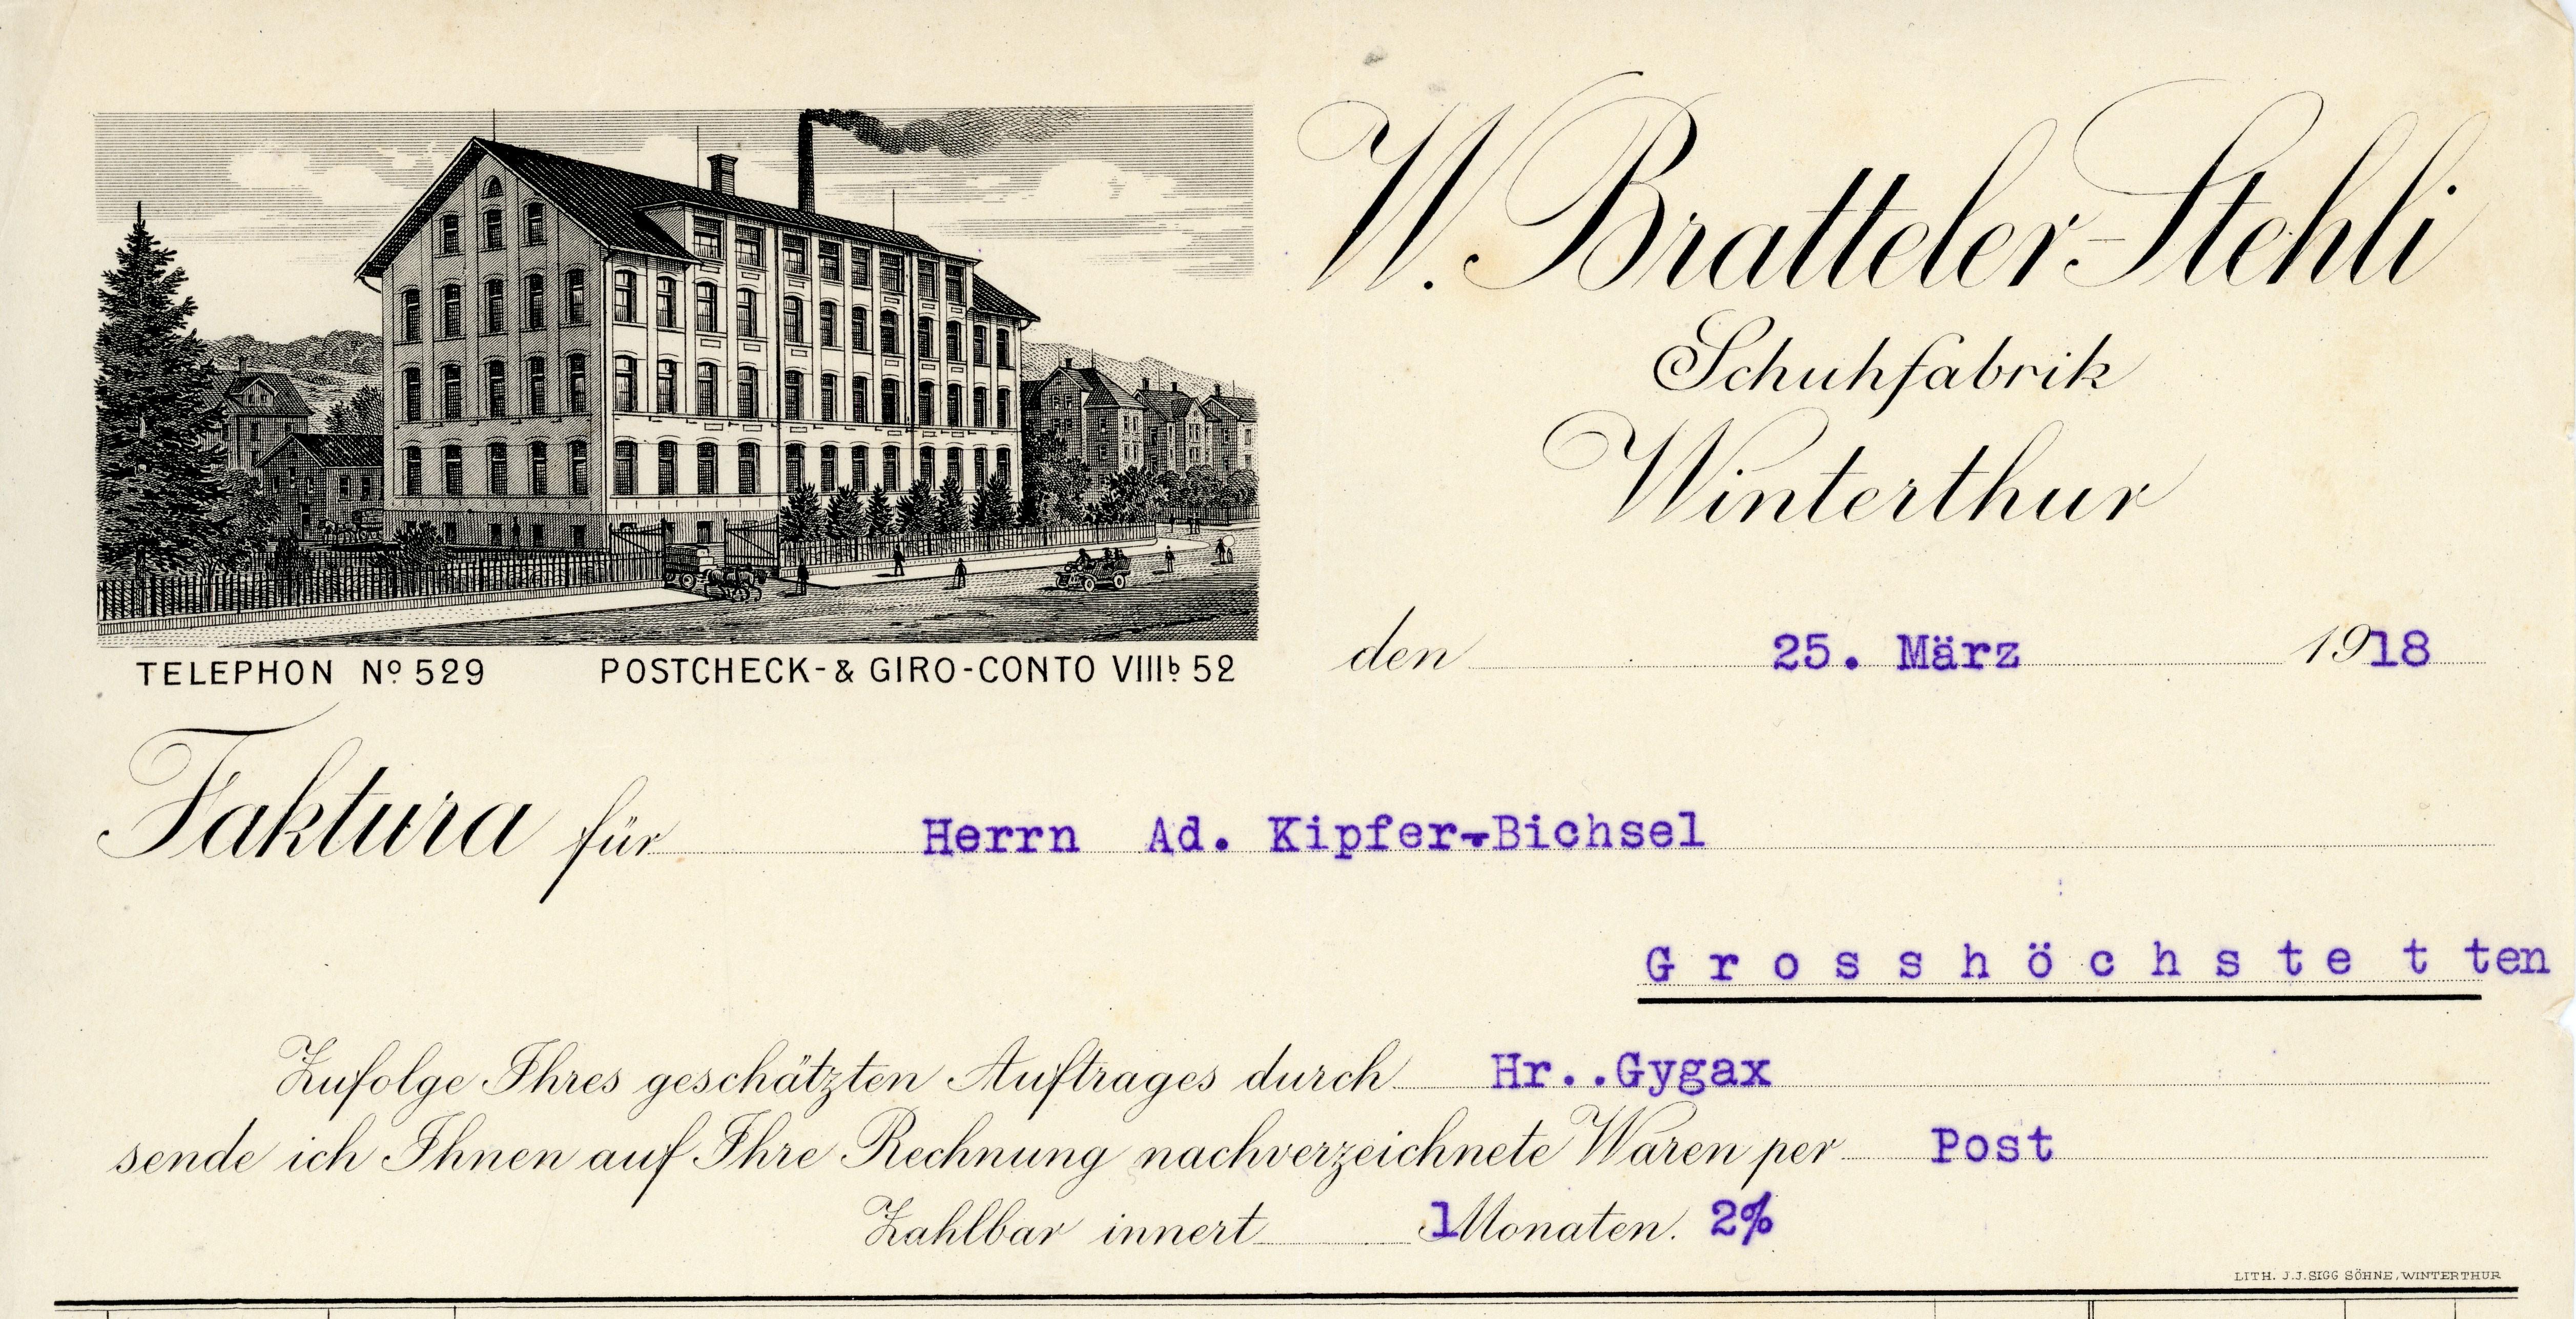 W. Bratteler-Stehli
Schuhfabrik
Winterthur
TELEPHON Nº 529 POSTCHECK- & GIRO-CONTO VIIIb 52
den 25. März 1918
Faktura für Herrn Ad. Kipfer-Bichsel
Grosshöchstetten
Zufolge Ihres geschätzten Auftrages durch Hr..Gygax
sende ich Ihnen auf Ihre Rechnung nachverzeichnete Waren per Post
Zahlbar innert 1 Monaten. 2%
LITH. J.J. SIGG SÖHNE, WINTERTHUR